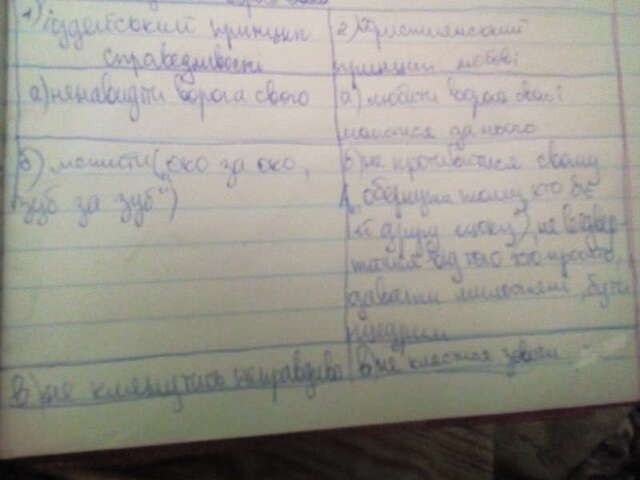 1) іудейський принцип
справедливості
а) ненавидіти ворога свого
б) мстити ("око за око,
зуб за зуб")
в) не клянучись неправдиво
2) Християнський
принцип любові
а) любити ворога свого і
молитися за нього
б) не противитися свому
обернути тому хто б'є
другу щоку"), не відвер-
татися від того хто просить,
давати милостині, бути
щедрим
в) не клястися зовсім